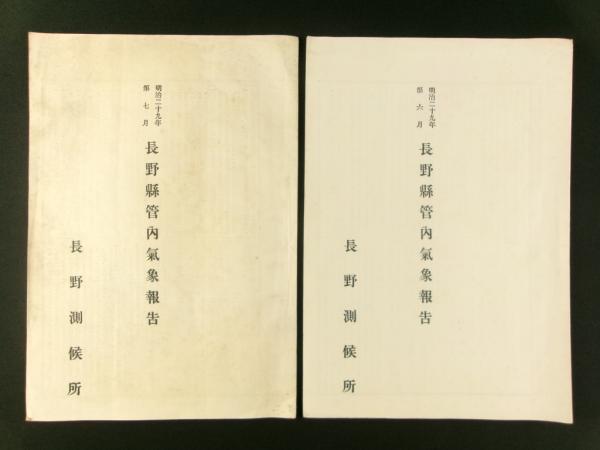 明治二十九年
第七月
長野縣管內氣象報告
長野測候所
明治二十九年
第六月
長野縣管內氣象報告
長野測候所